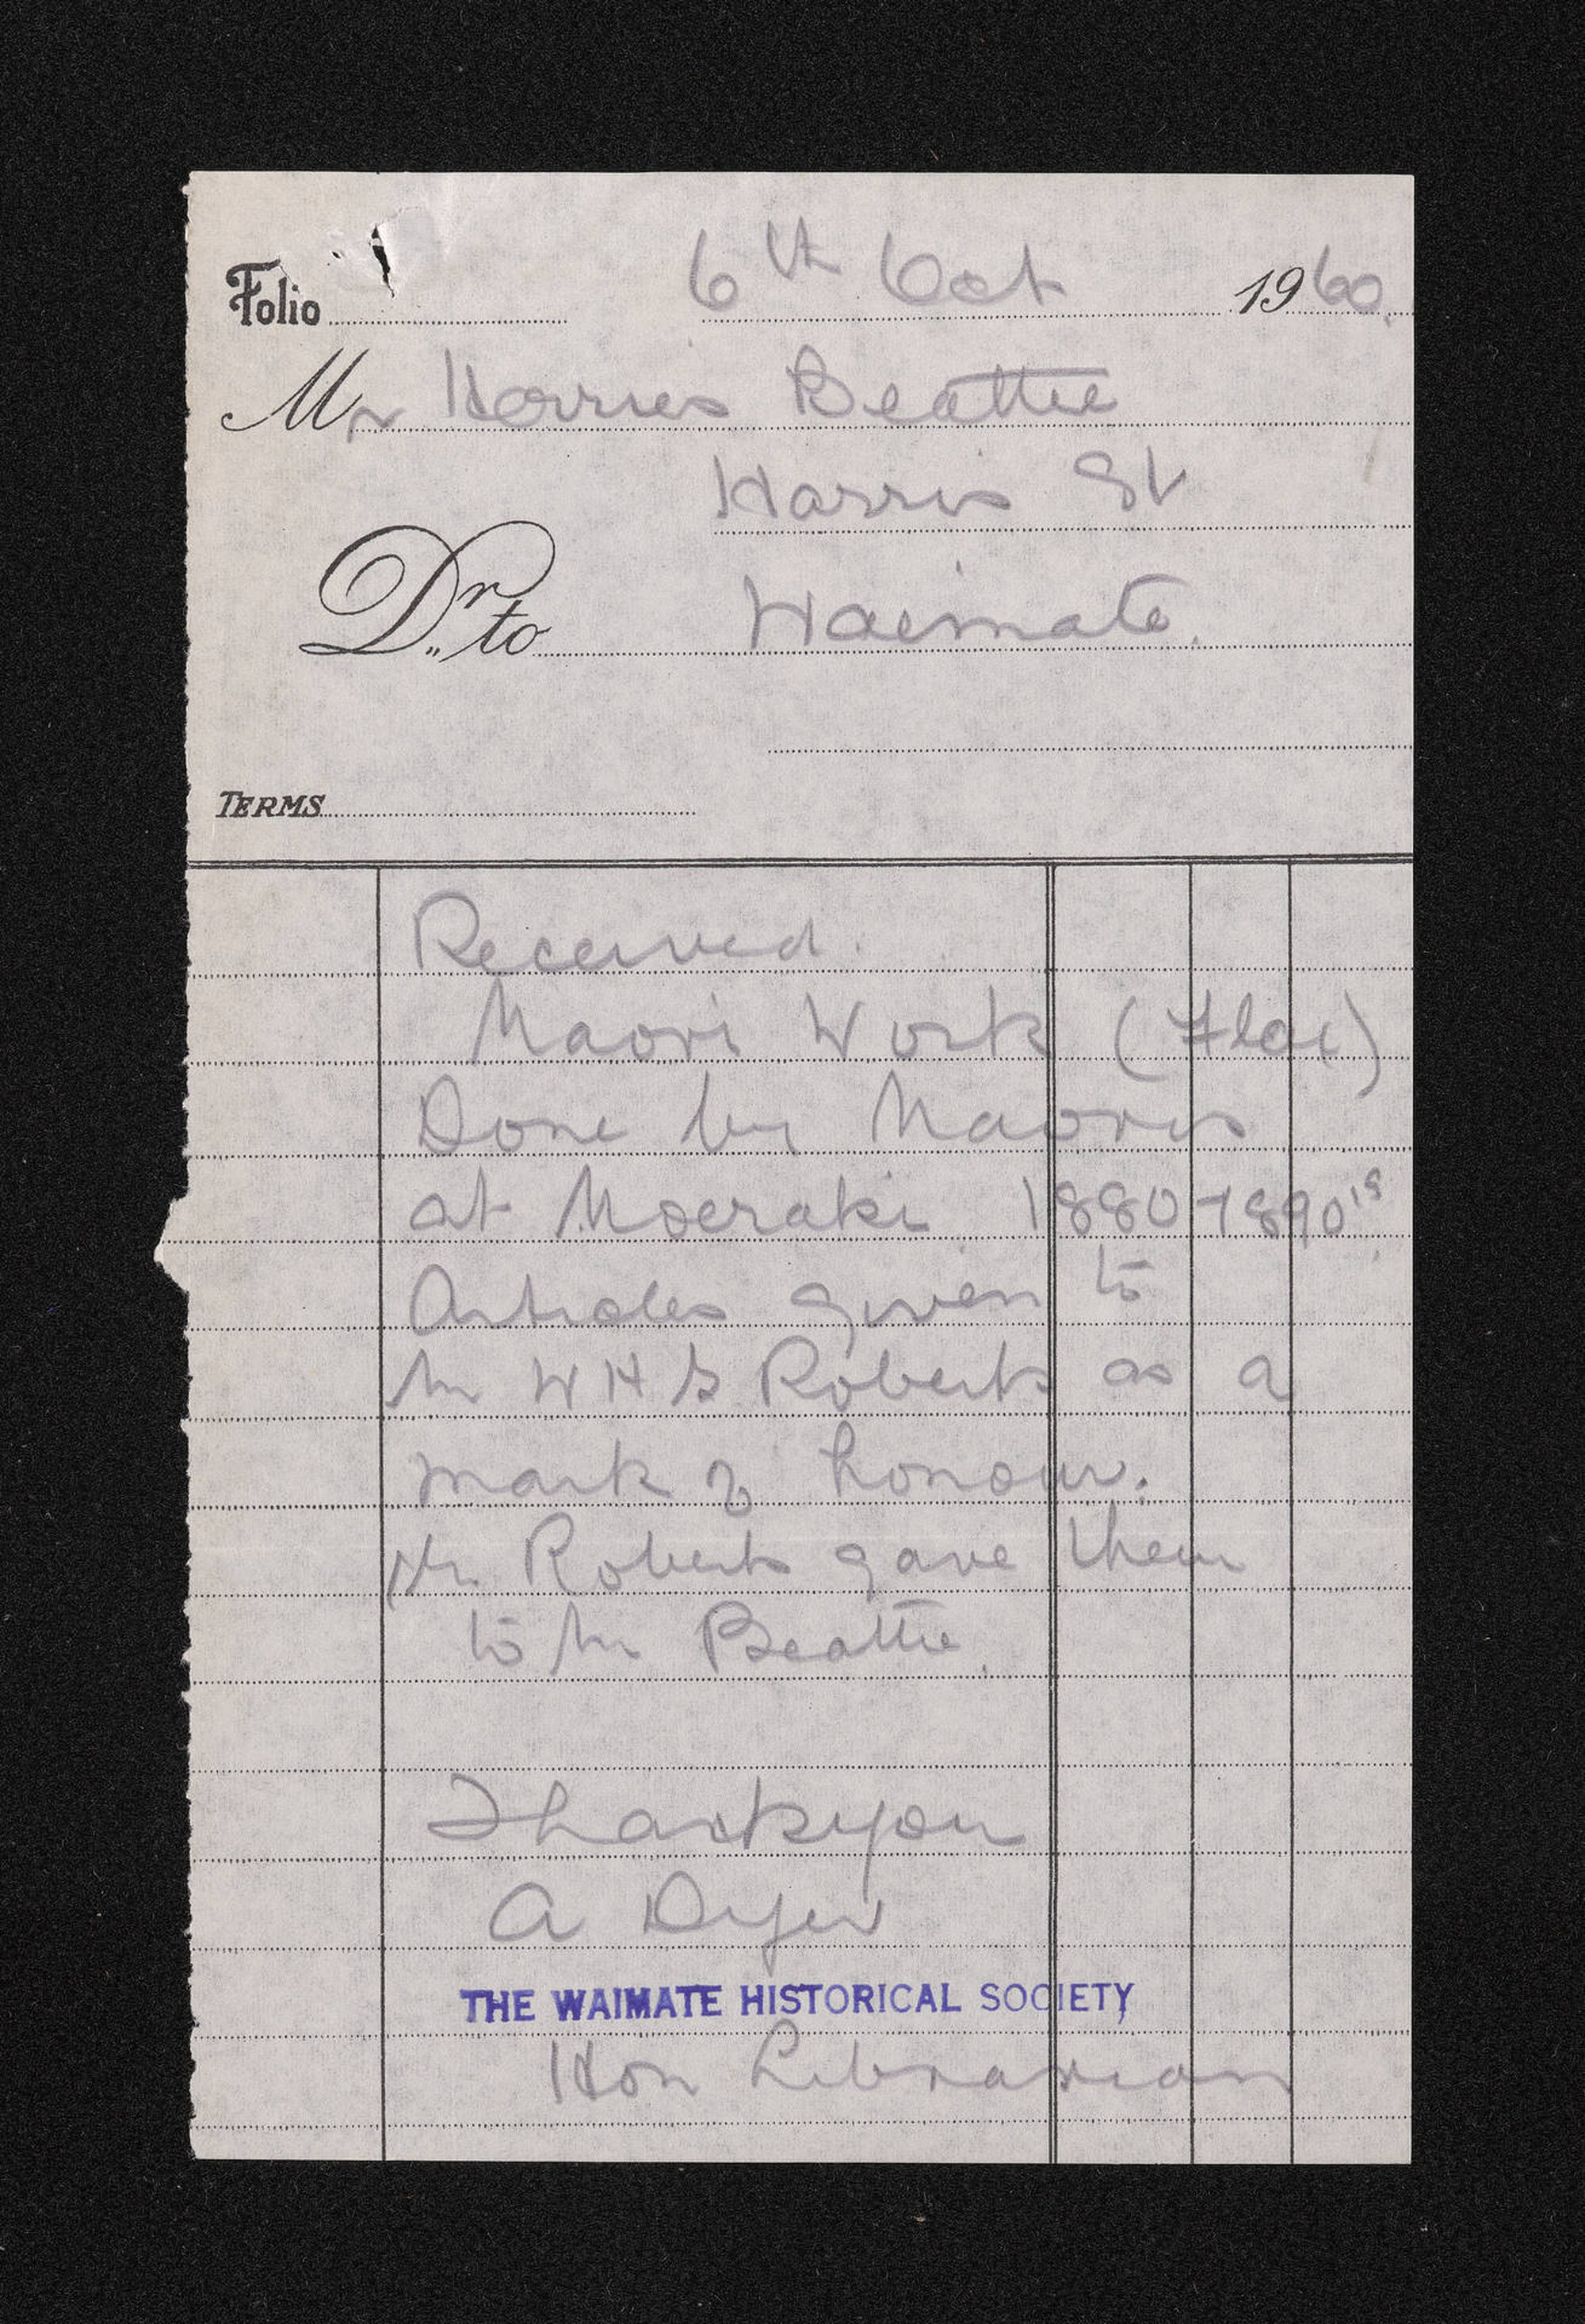 Folio 6th Oct 1960.
Mr Herries Beattie
Harris St
Dr. to Waimate.
TERMS
Received.
Maori Work (Flax)
Done by Maoris
at Moeraki 1880-1890's
Articles given to
Mr W H S Roberts as a
mark of honour.
Mr. Roberts gave them
to Mr Beattie.
Thankyou
A Dyer
THE WAIMATE HISTORICAL SOCIETY
Hon Librarian